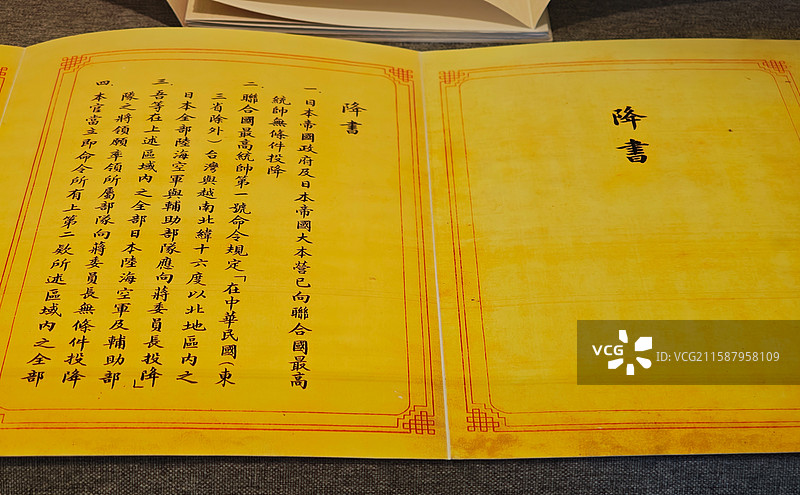 降書
降書
一 日本帝國政府及日本帝國大本營已向聯合國最高
統帥無條件投降
二 聯合國最高統帥第一號命令規定「在中華民國(東
三省除外)台灣與越南北緯十六度以北地區內之
日本全部陸海空軍與輔助部隊應向蔣委員長投降」
三 吾等在上述區域內之全部日本陸海空軍及輔助部
隊之將領願率領所屬部隊向蔣委員長無條件投降
四 本官當立即命令所有上第二款所述區域內之全部
VCG
VCG
ID:VCG211587958109